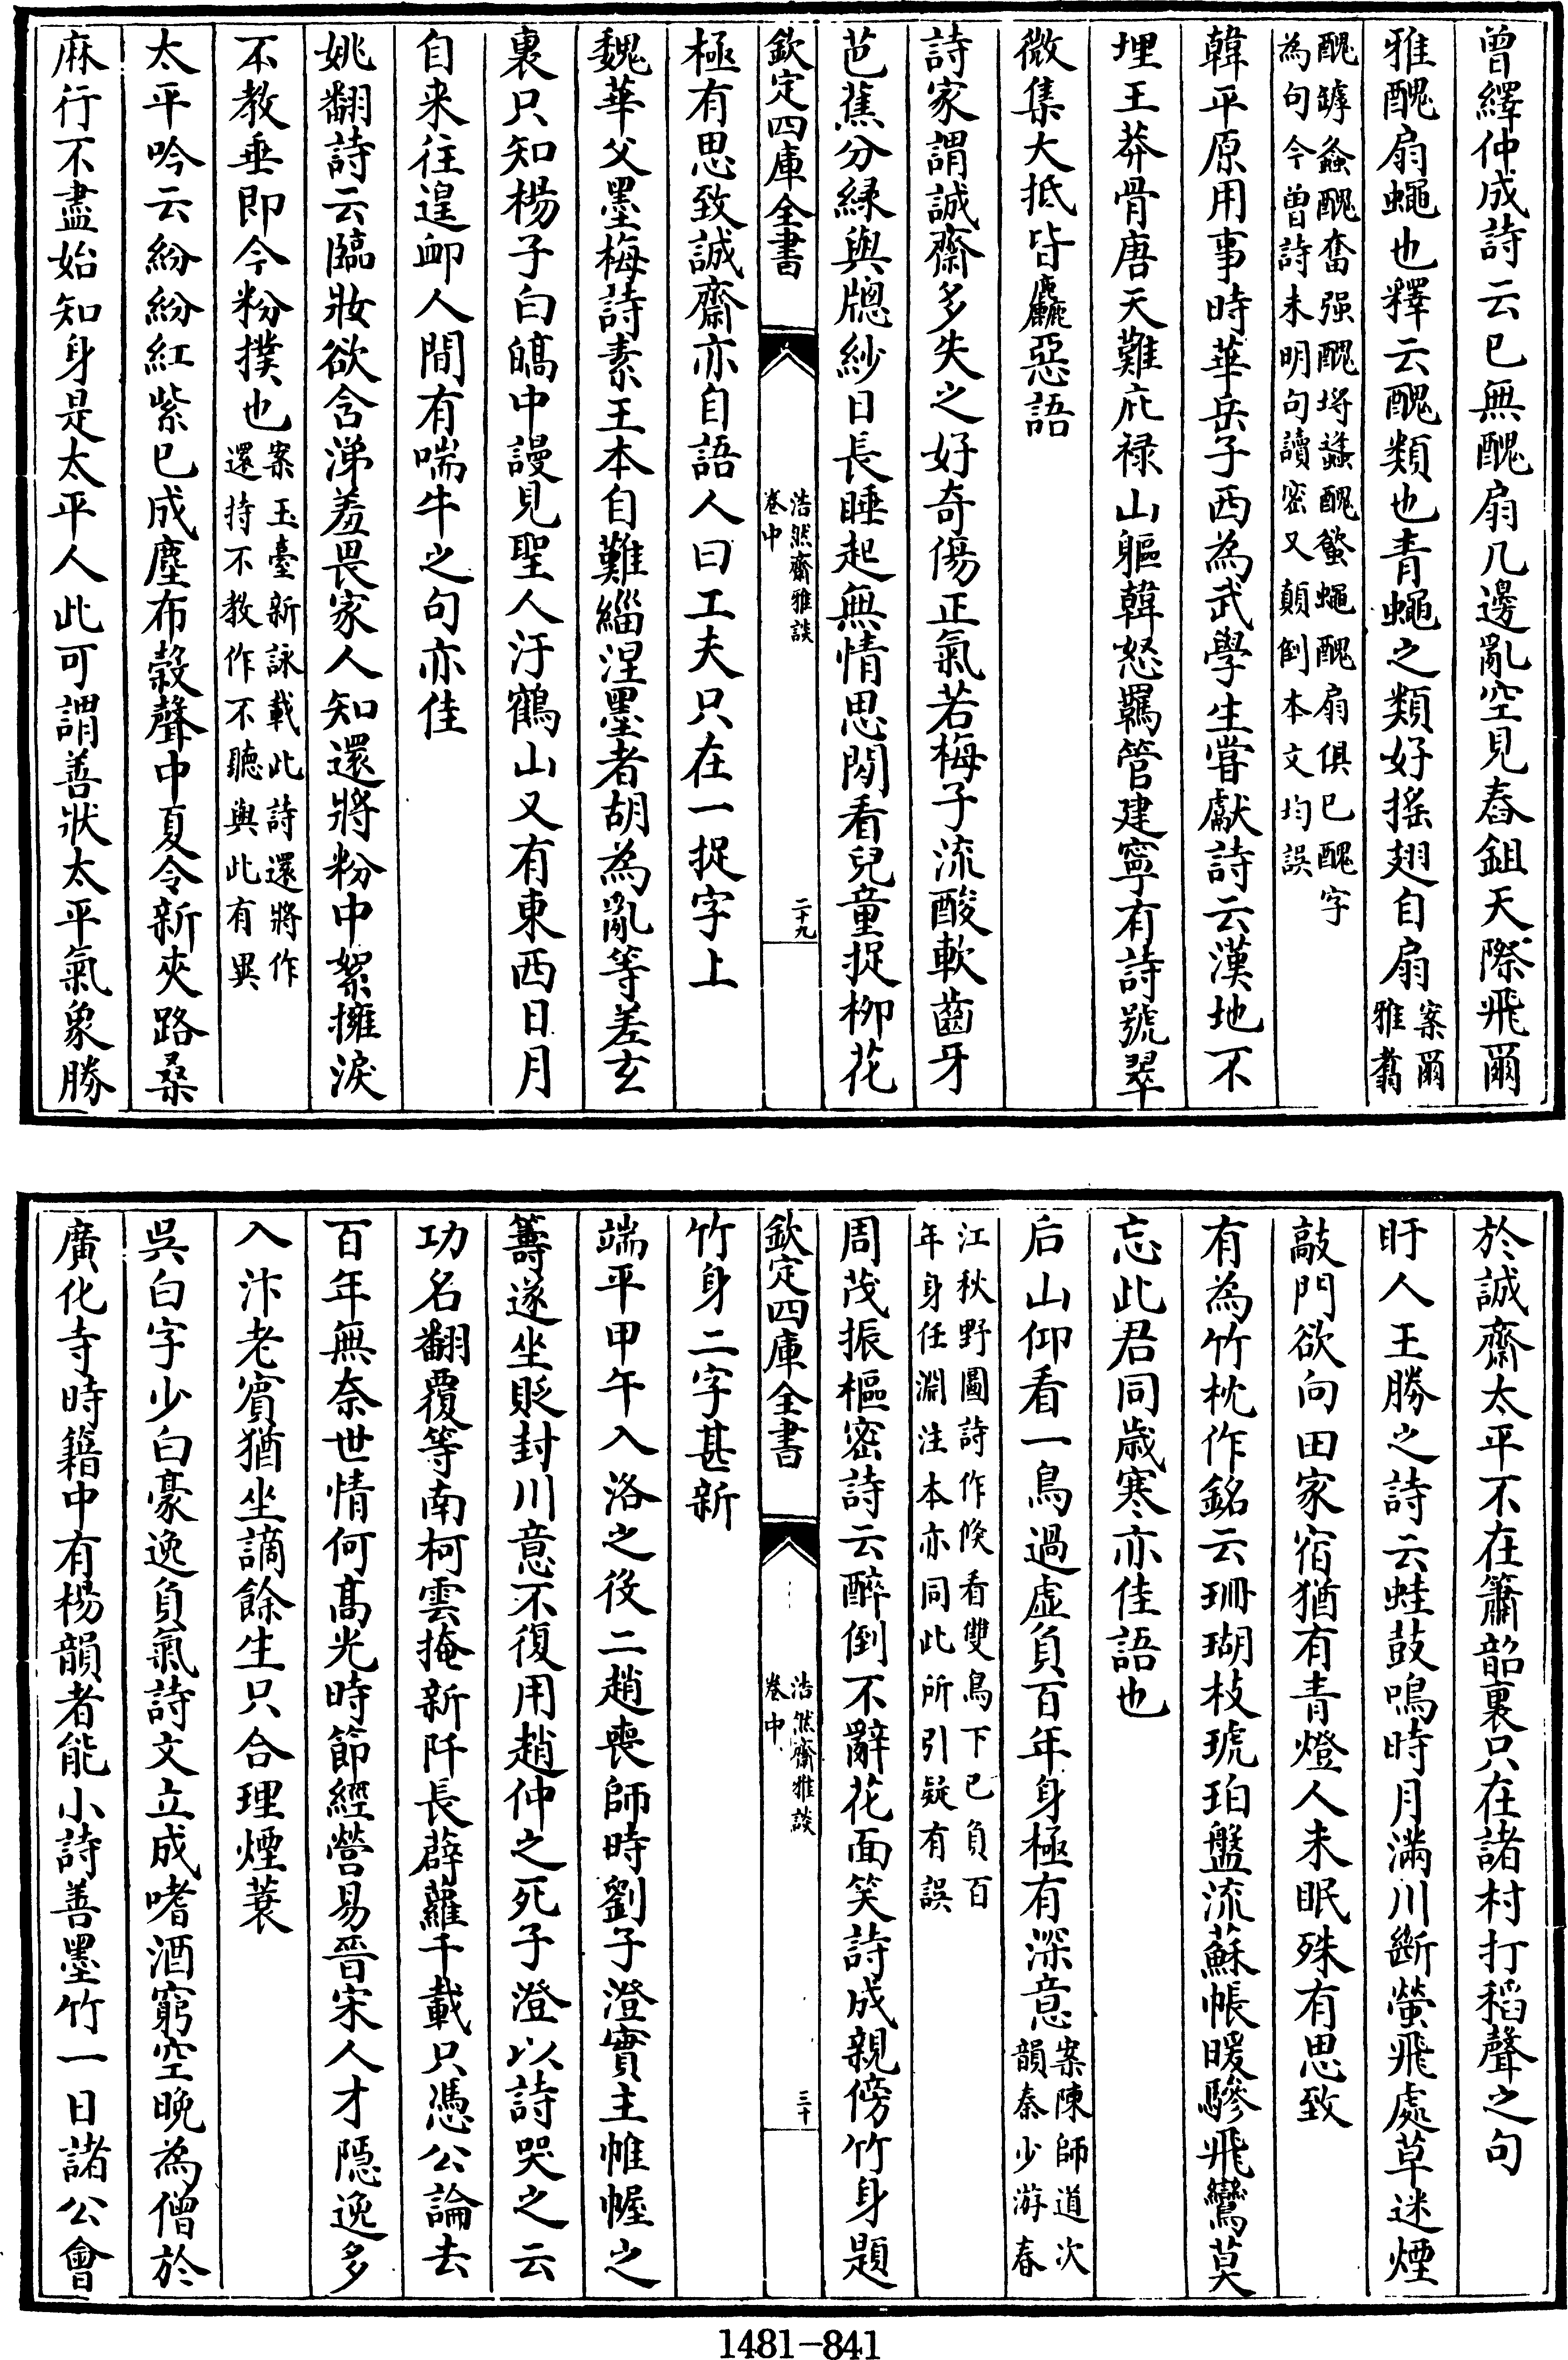 曾繹仲成詩云已無醜扇几邊亂空見舂鉏天際飛爾
雅醜扇蠅也釋云醜類也青蠅之類好摇翅自扇案爾雅翥
醜罅螽醜奮强醜捋蠭醜螸蠅醜扇俱已醜字
為句今曾詩未明句讀密又顛倒本文均誤
韓平原用事時華岳子西為武學生嘗獻詩云漢地不
埋王莽骨唐天難庇禄山軀韓怒羈管建寧有詩號翠
微集大抵皆麤惡語
詩家謂誠齋多失之好奇傷正氣若梅子流酸軟齒牙
芭蕉分緑與牕紗日長睡起無情思閑看兒童捉栁花
欽定四庫全書 浩然齋雅談 卷中 二十九
極有思致誠齋亦自語人曰工夫只在一捉字上
魏華父墨梅詩素王本自難緇湼墨者胡為亂等差玄
裏只知楊子白皜中謾見聖人汙鶴山又有東西日月
自来往遑䘏人間有喘牛之句亦佳
姚翻詩云臨妝欲含涕羞畏家人知還將粉中絮擁淚
不教垂即今粉撲也案玉臺新詠載此詩還將作還持不教作不聽與此有異
太平吟云紛紛紅紫已成塵布榖聲中夏令新夾路桑
麻行不盡始知身是太平人此可謂善狀太平氣象勝
於誠齋太平不在簫韶裏只在諸村打稻聲之句
盱人王勝之詩云蛙鼓鳴時月滿川斷螢飛處草迷煙
敲門欲向田家宿猶有青燈人未眠殊有思致
有為竹枕作銘云珊瑚枝琥珀盤流蘇帳暖驂飛鸞莫
忘此君同歲寒亦佳語也
后山仰看一鳥過虚負百年身極有深意案陳師道次韻秦少游春
江秋野圖詩作倐看雙鳥下已負百
年身任淵注本亦同此所引疑有誤
周茂振樞密詩云醉倒不辭花面笑詩成親傍竹身題
欽定四庫全書 浩然齋雅談 卷中 三十
竹身二字甚新
端平甲午入洛之役二趙喪師時劉子澄實主帷幄之
籌遂坐貶封川意不復用趙仲之死子澄以詩哭之云
功名翻覆等南柯雲掩新阡長薜蘿千載只憑公論去
百年無奈世情何髙光時節經營易晉宋人才隠逸多
入汴老賓猶坐謫餘生只合理煙蓑
吳白字少白豪逸負氣詩文立成嗜酒窮空晚為僧於
廣化寺時籍中有楊韻者能小詩善墨竹一日諸公會
1481-841